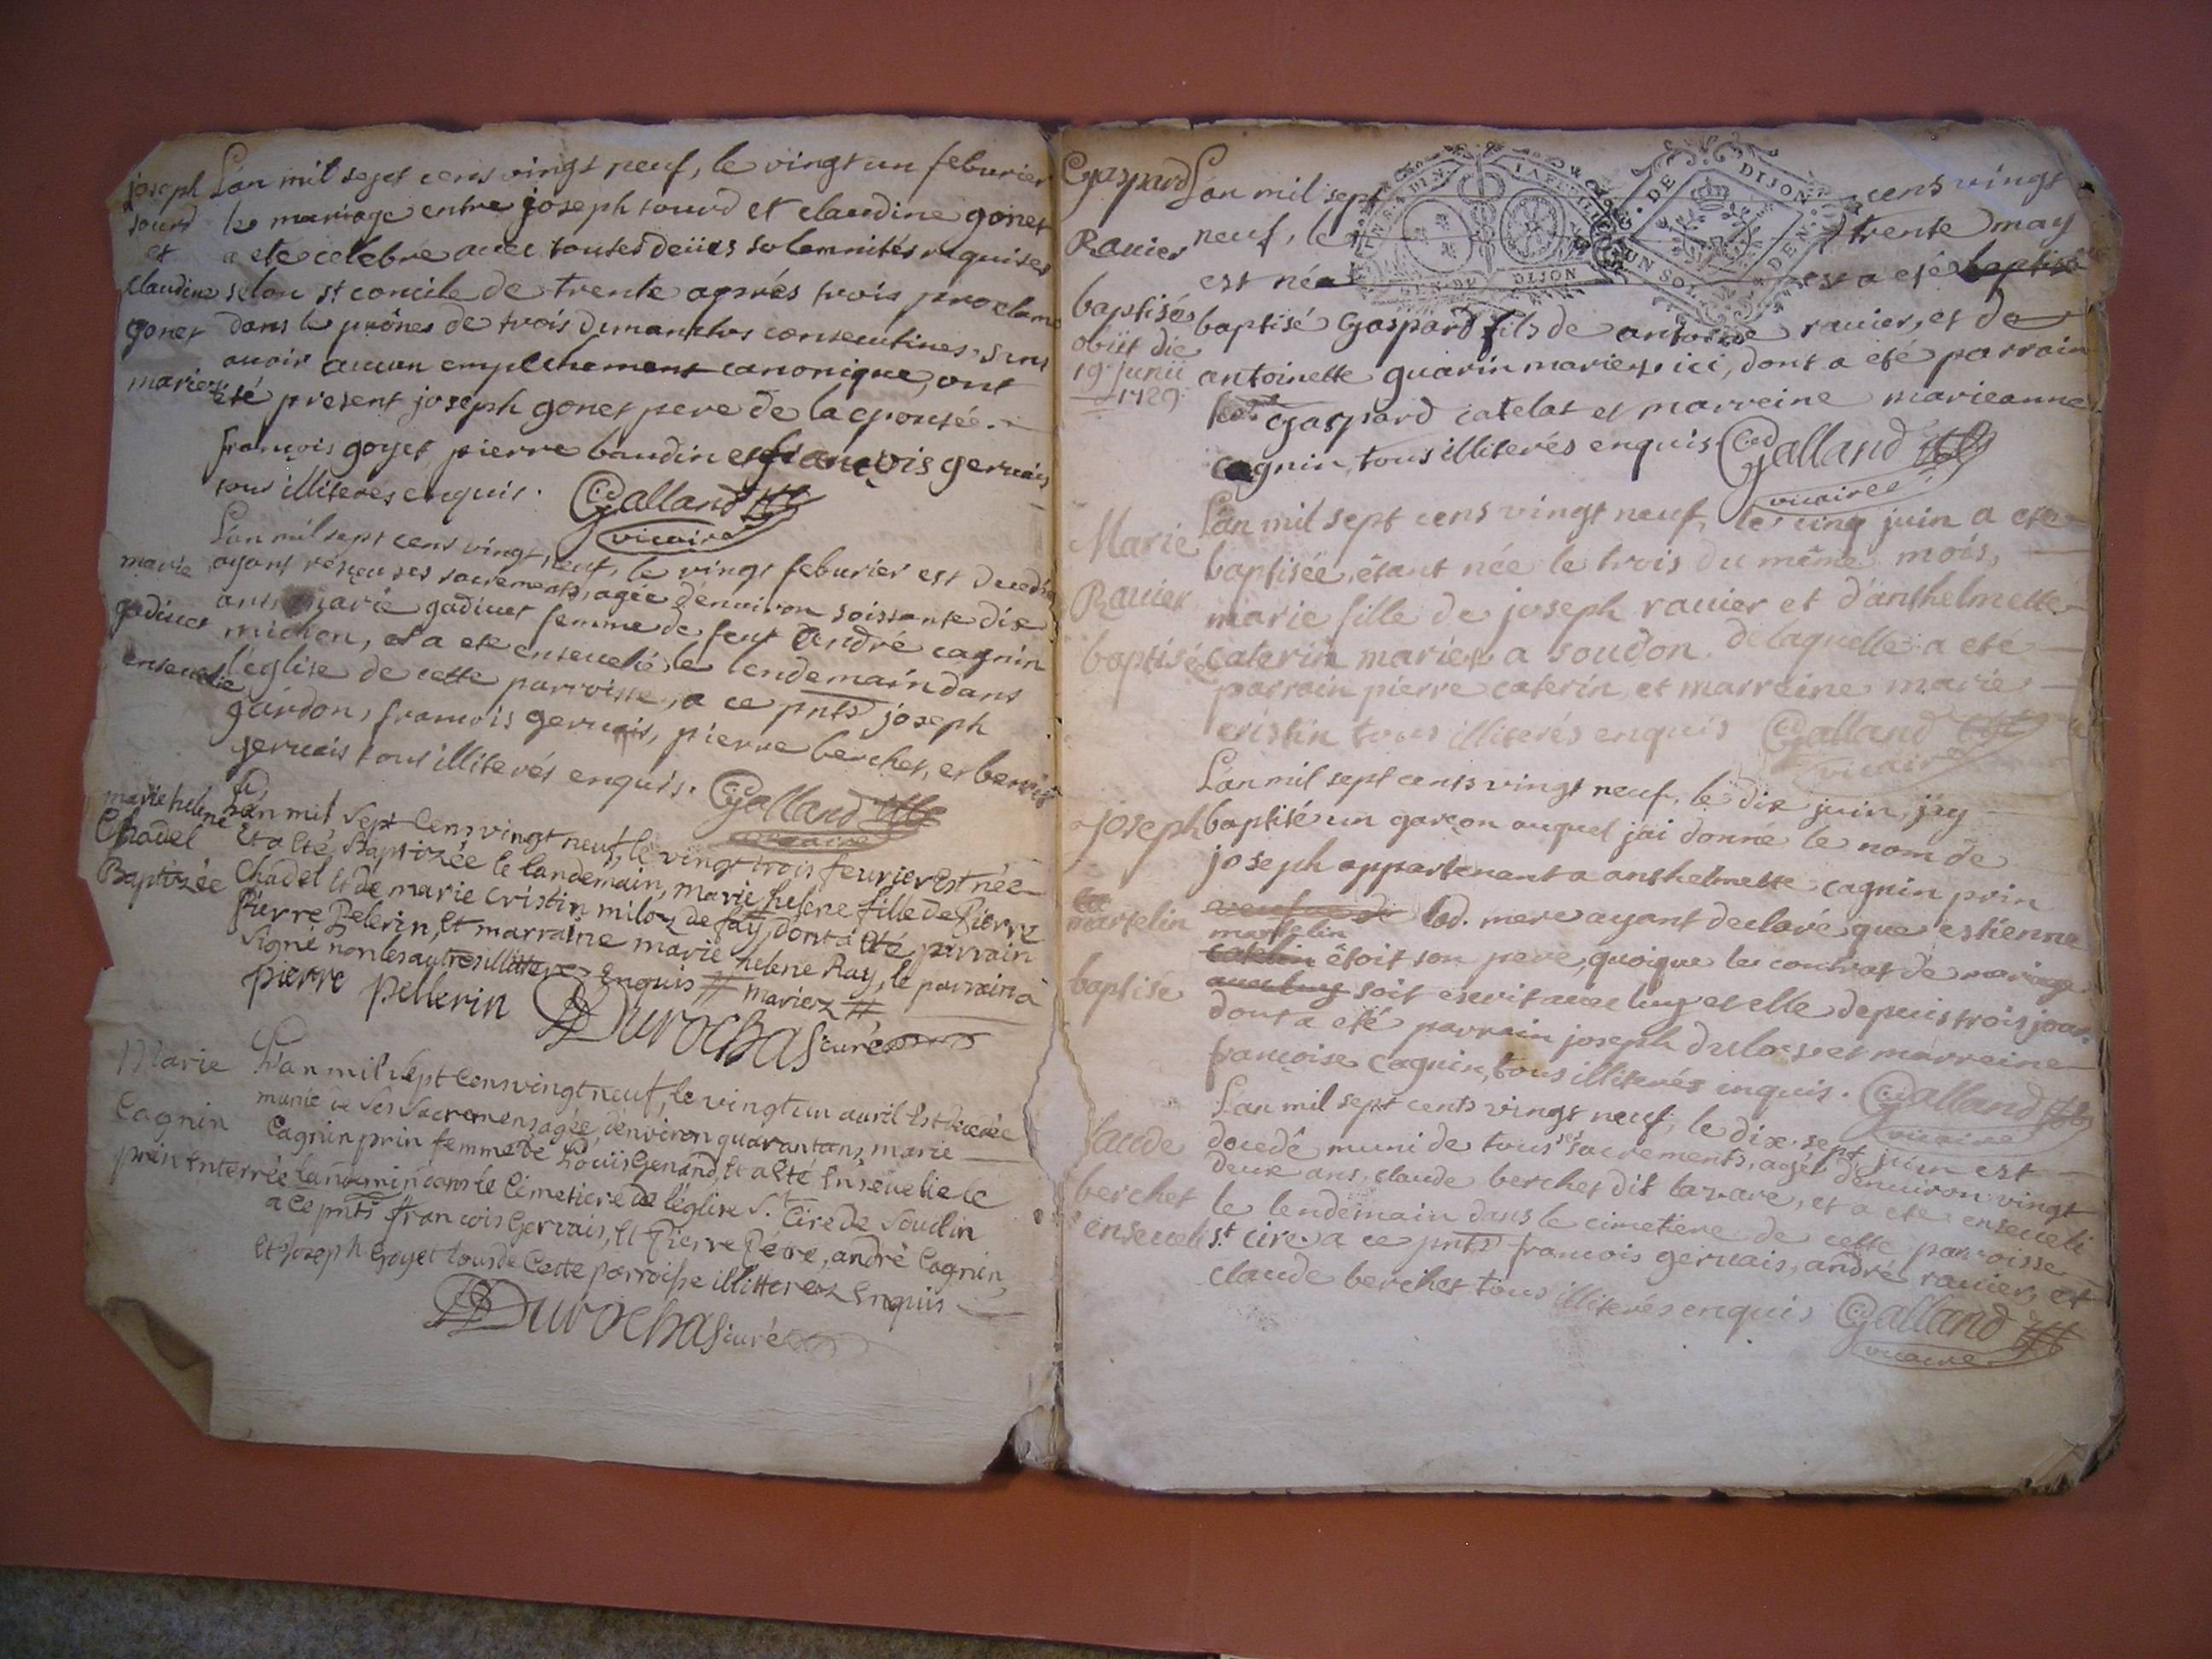 joseph
sourd
et
claudine
gonet
mariez
L'an mil sept cens vingt neuf, le vingt un feburier
le mariage entre joseph sourd et claudine gonet
a eté celebré avec toutes deües solemnités requises
selon st concile de trente aprés trois proclama
dans les prônes de trois dimanches consecutives, sans
avoir aucun empechement canonique, ont
eté present joseph gonet pere de la epousée.
françois goyet, pierre baudin et françois gervais
tous illiterés enquis. Galland
vicaire
marie
gadiuet
ensevelie
L'an mil sept cens vingt neuf, le vingt feburier est decedée
ayant reçeu ses sacrements, agée d'environ soissante dix
ans, marie gadiuet femme de feut André cagnin
michon, et a ete ensevelié le lendemain dans
l'église de cette parroisse, a ce pnts joseph
guirdon, francois gervais, pierre berchet, et benoit
gervais tous illiterés enquis. Galland
vicaire
marie helene
Chadel
Baptizée
L'an mil Sept Cens vingt neuf, le vingt trois feurier Est née
Et a Eté Baptizée le landemain, marie helene fille de Pierre
Chadel Et de marie Cristin miloz de fay, dont a Eté parrain
Pierre Pelerin, Et marraine marie helene Ray, le parrain a
Signé non les autres illitterez Enquis # mariez #
pierre pellerin Durochas curé
Marie
Cagnin
prin Enterrée
L'an mil Sept Cens vingt neuf, le vingt un auril Est decedée
munie de Ses Sacremens, agée d'environ quarant ans, marie
Cagnin prin femme de Loüis Genand, Et a Eté Ensevelie le
landemin dans le Cimetiere de l'église St. Cire de Soudin
a Ce pnts francois Gervais, Et Pierre Pétre, andré Cagnin,
Et Joseph Goyet tous de Cette parroisse illitterez Enquis
Durochas curé
Gaspard
Ravier
baptisé
obiit die
19 junii
1729
GEN. DE DIJON
G. DE DIJON
UN SOL
L'an mil sept cens vingt
neuf, le trente may
est né et a eté baptisé
baptisé Gaspard fils de antoine ravier, et de
antoinette guarin mariez ici, dont a eté parrain
Gaspard catelat et marreine marieanne
cagnin, tous illiterés enquis Galland
vicaire
Marie
Ravier
baptisée
L'an mil sept cens vingt neuf, le cinq juin a eté
baptisée, étant née le trois du même mois,
marie fille de joseph ravier et d'anthelmette
caterin mariez a soudon. de laquelle a eté
parrain pierre caterin, et marreine marie
cristin tous illiterés enquis Galland
vicaire
joseph
marselin
baptisé
L'an mil sept cents vingt neuf, le dix juin, jay
baptisé un garcon auquel jai donné le nom de
joseph appartenant a anthelmette cagnin prin
veufve de lad. mere ayant declaré que estienne
marselin
catelin étoit son pere, quoique le contrat de mariage
avec luy soit escrit avec luy et elle depuis trois jours,
dont a eté parrain joseph duloz et marreine
francoise cagnin, tous illiterés enquis. Galland
vicaire
laude
berchet
enseveli
L'an mil sept cents vingt neuf, le dix sept juin est
decedé muni de tous ses sacrements, agé d'environ vingt
deux ans, claude berchet dit lavare, et a ete enseveli
le lendemain dans le cimetiere de cette parroisse
st. cire. a ce pnts francois gervais, andré ravier, et
claude berchet tous illiterés enquis Galland
vicaire